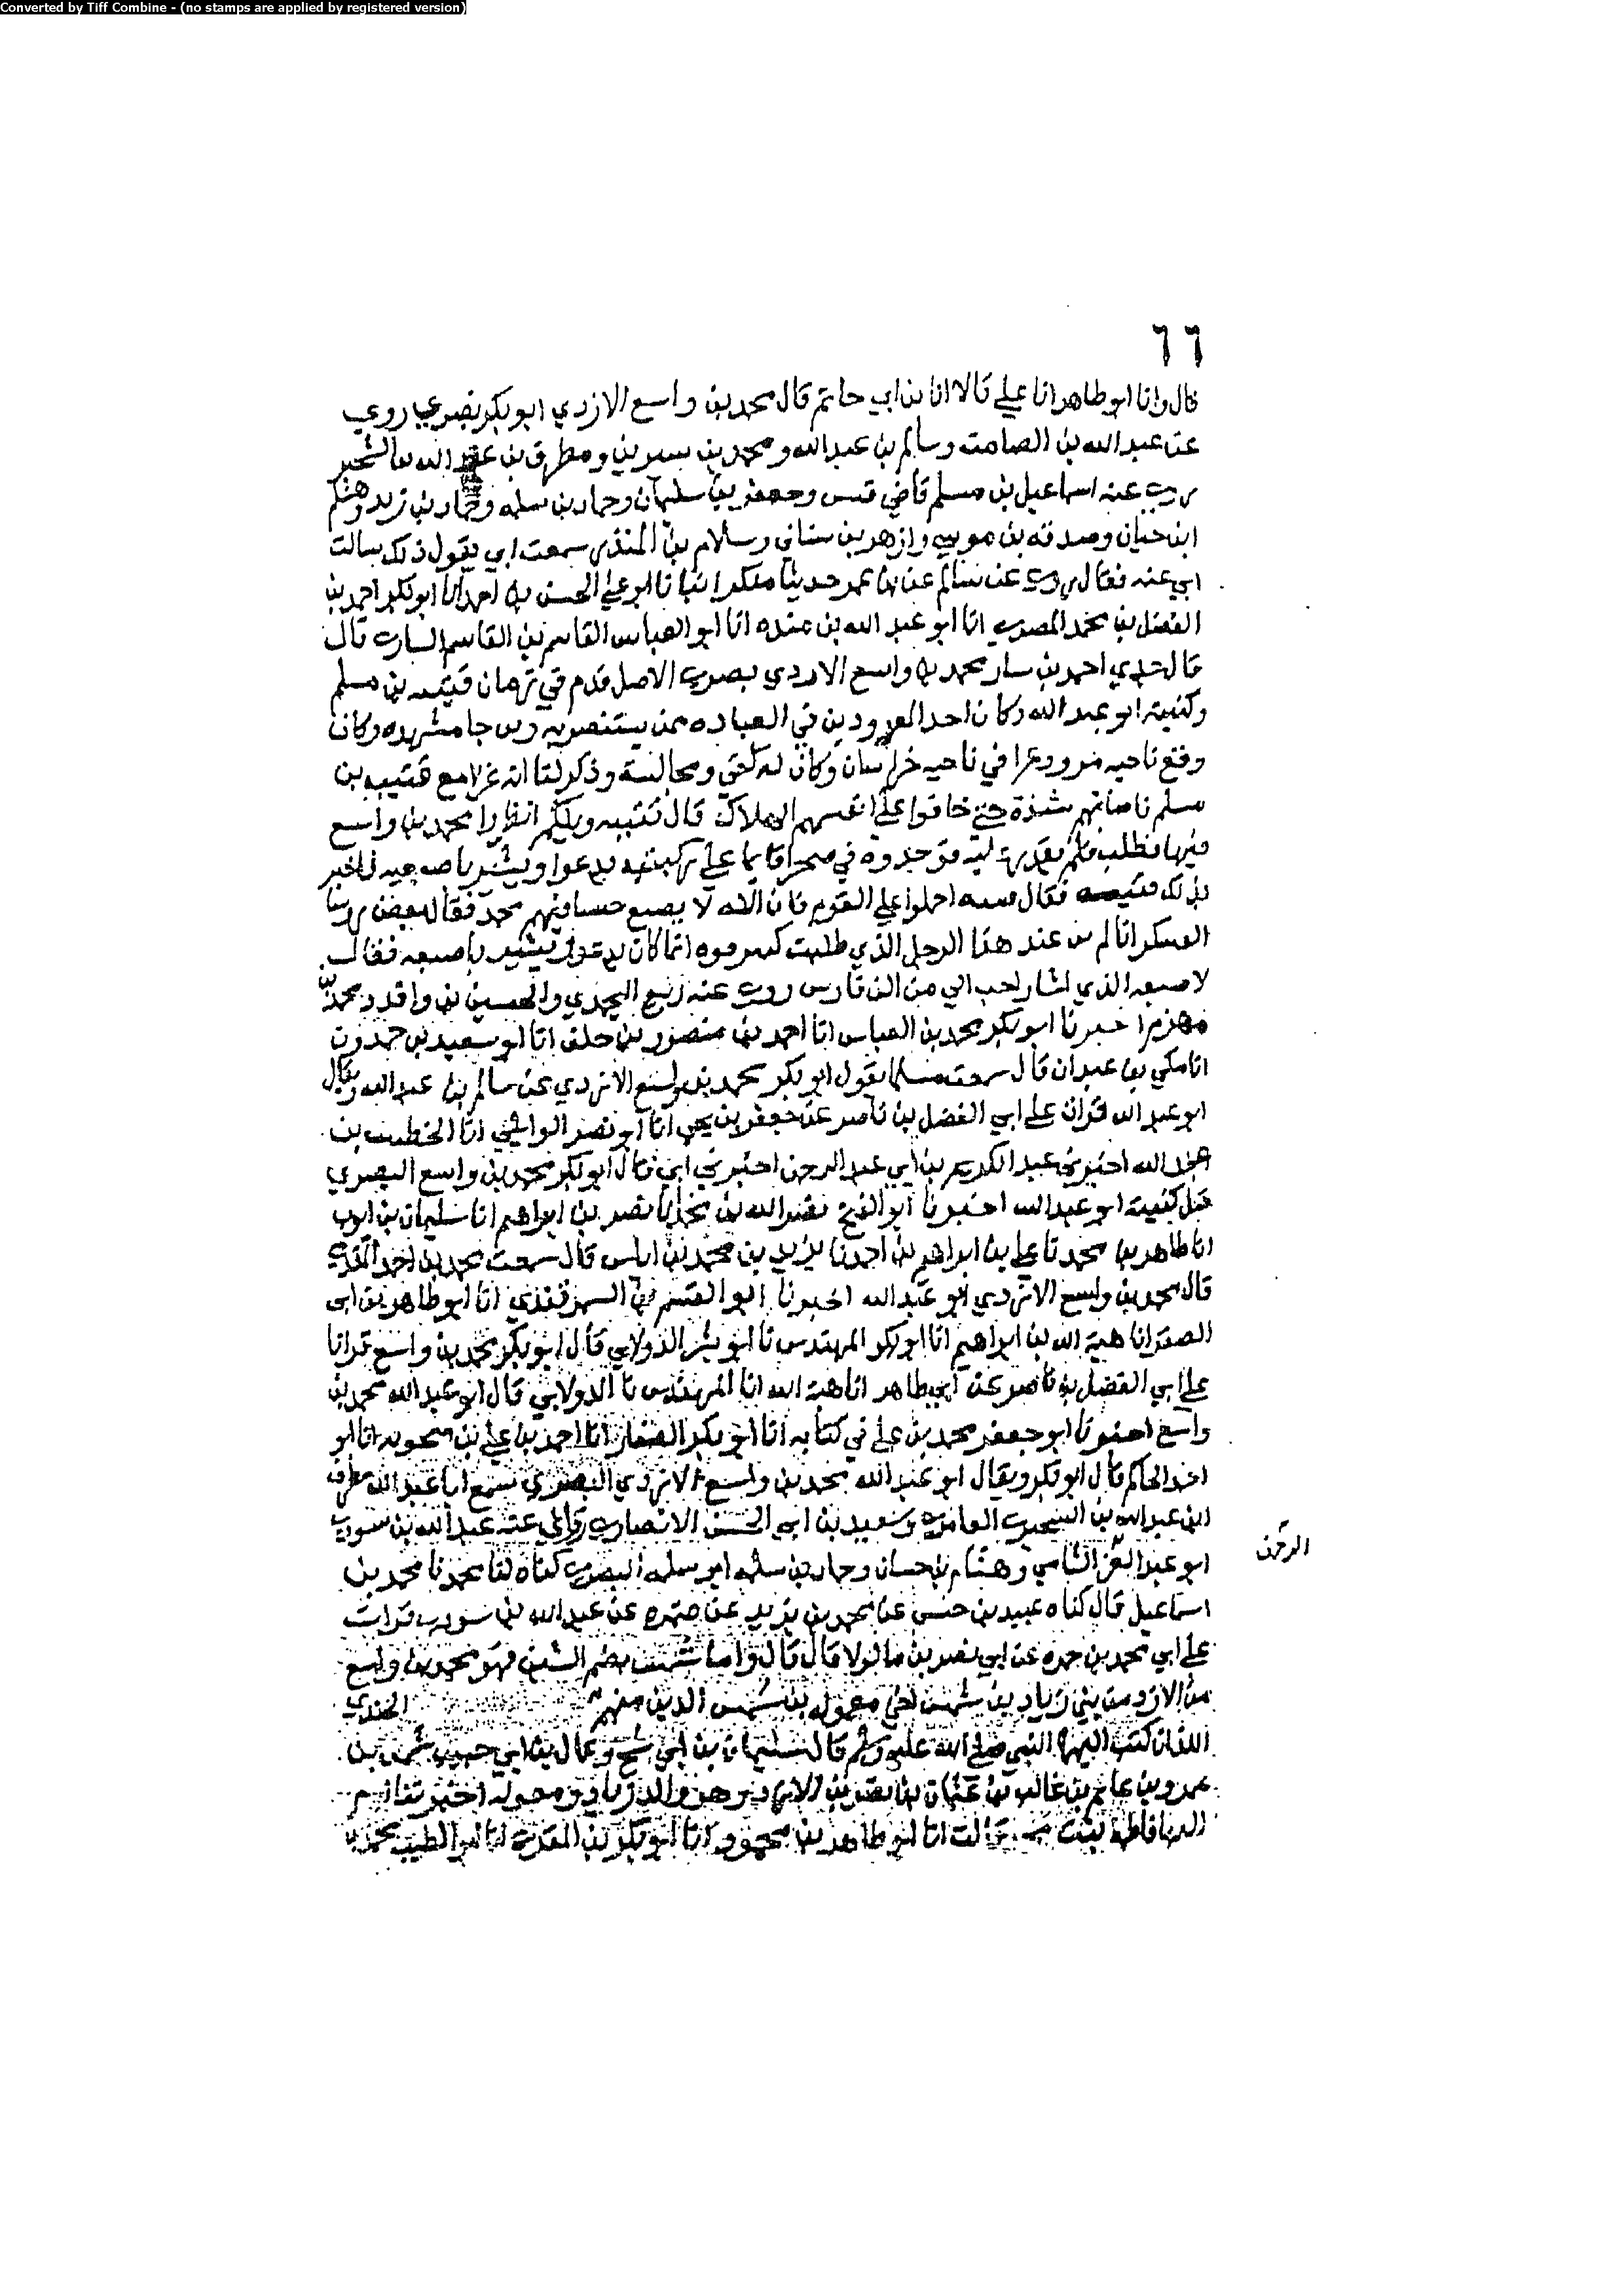 Converted by Tiff Combine - (no stamps are applied by registered version)
٦٦
قال وانا ابو طاهر انا علي قالا انا بن ابي حاتم قال محمد بن واسع الازدي ابو بكر بصري روى
عن عبد الله بن الصامت وسالم بن عبد الله ومحمد بن سيرين ومطرف بن عبد الله بن الشخير
روى عنه اسماعيل بن مسلم قاضي قيس وجعفر بن سليمان وحماد بن سلمه وحماد بن زيد
ابن حيان وصدقه بن موسى وازهر بن سنان وسلام بن المنذر سمعت ابي يقول ذلك سالت
ابي عنه فقال روى عن سالم عن بن عمر حديثا منكرا انبانا ابو علي الحسن بن احمد انا ابو بكر احمد بن
الفضل بن محمد المصري انا ابو عبد الله بن منده انا ابو العباس القاسم بن القاسم السياري قال
قال جدي احمد بن سيار محمد بن واسع الازدي بصري الاصل قدم في زمان قتيبه بن مسلم
وكنيته ابو عبد الله وكان احد المعدودين في العباده ممن يستنصر به
وقع ناحيه مرو وغزا في ناحيه خراسان وكان له ومجالسة وذكر لنا انه غزا مع قتيبه بن
مسلم فاصابتهم شدة حتى خافوا على انفسهم الهلاك قال قتيبه ويلكم انظروا محمد بن واسع
فيها فطلب فلم يقدر عليه فوجدوه في صحرا قايما على ركبتيه يدعوا ويشير باصبعيه فاخبر
بذلك قتيبه فقال قتيبه احملوا على القوم فان الله لا يضيع جيشا فيهم محمد فقال بعض روسا
العسكر انا لم نر عند هذا الرجل الذي طلبت كبير قوه انما كان يدعو ويشير باصبعه فقال
لاصبعه الذي اشار احب الي من الف فارس روى عنه ربيع اليحمدي والحسين بن واقد ومحمد بن
مهزم اخبرنا ابو بكر محمد بن العباس انا احمد بن منصور بن خلف انا ابو سعيد بن حمدون
انا مكي بن عبدان قال سمعت مسلما يقول ابو بكر محمد بن واسع الازدي عن سالم بن عبد الله ويقال
ابو عبد الله قرات على ابي الفضل بن ناصر عن جعفر بن يحيى انا ابو نصر الوايلي انا الخطيب بن
عبد الله اخبرني عبد الكريم بن ابي عبد الرحمن اخبرني ابي قال ابو بكر محمد بن واسع البصري
قيل كنيته ابو عبد الله اخبرنا ابو الفتح نصر الله بن محمد انا نصر بن ابراهيم انا سليمان بن ايوب
انا طاهر بن محمد نا علي بن ابراهيم بن احمد نا يزيد بن محمد بن اياس قال سمعت محمد بن احمد المقدمي
قال محمد بن واسع الازدي ابو عبد الله اخبرنا ابو القسم بن السمرقندي انا ابو طاهر بن ابي
الصقر انا هبة الله بن ابراهيم انا ابو بكر المهندس نا ابو بشر الدولابي قال ابو بكر محمد بن واسع قرانا
على ابي الفضل بن ناصر عن ابي طاهر انا هبة الله انا المهندس نا الدولابي قال ابو عبد الله محمد بن
واسع اخبرنا ابو جعفر محمد بن علي في كتابه انا ابو بكر الصفار انا احمد بن علي بن منجويه انا ابو
احمد الحاكم قال ابو بكر ويقال ابو عبد الله محمد بن واسع الازدي البصري سمع ابا عبد الله مطرف
ابن عبد الله بن الشخير العامري وسعيد بن ابي الحسن الانصاري روى عنه عبد الله بن شوذب
الرحمن
ابو عبد الشامي وهشام بن حسان وحماد بن سلمه ابو سلمه البصري كناه لنا محمد نا محمد بن
اسماعيل قال كناه عبيد بن عن محمد بن يزيد عن ضمره عن عبد الله بن شوذب قرات
على ابي محمد بن حمزه عن ابي نصر بن ماكولا قال قال واما شمس بضم الشين فهو محمد بن واسع
من الازد من بني زياد بن شمس اخي معوله بن شمس الذين منهم الجلندى
اللذان كتب اليهما النبي صلى الله عليه وسلم قال سليمان بن ابي شيخ وقال بن ابي حبيب شمس بن
عمرو بن غانم بن غالب بن عثمان بن نصر بن الازد وهو والد زياد ومعوله اخبرتنا ام
البها فاطمة بنت محمد قالت انا ابو طاهر بن محمود انا ابو بكر بن المقري انا ابو الطيب محمد بن